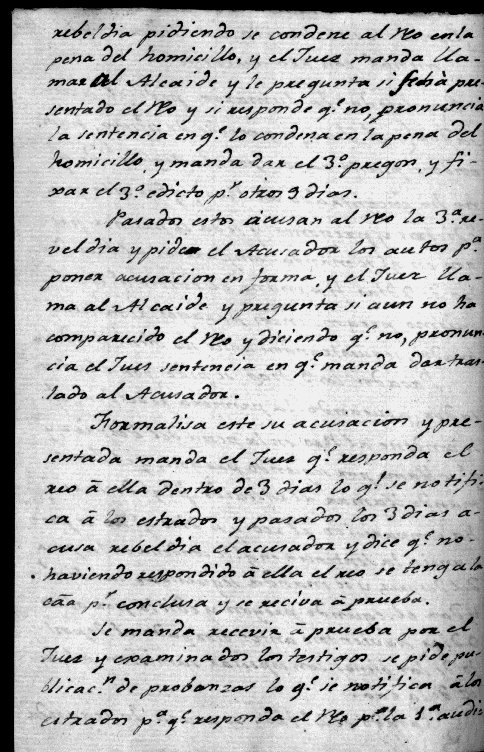 rebeldia pidiendo se condene al Reo en la
pena del homicillo, y el Juez manda lla-
mar al Alcaide y le pregunta si se ha pre-
sentado el Reo y si responde q.e no, pronuncia
la sentencia en q.e lo condena en la pena del
homicillo, y manda dar el 3.o pregon, y fi-
xar el 3.o edicto p.r otros 9 dias.
Pasados estos acusan al Reo la 3.a re-
veldia y pide el Acusador los autos p.a
poner acusacion en forma, y el Juez lla-
ma al Alcaide y pregunta si aun no ha
comparecido el Reo y diciendo q.e no, pronun-
cia el Jues sentencia en q.e manda dar tras-
lado al Acusador.
Formalisa este su acusacion y pre-
sentada manda el Juez q.e responda el
reo â ella dentro de 3 dias lo q.e se notifi-
ca â los estrados y pasados los 3 dias a-
cusa rebeldia el acusador y dice q.e no-
haviendo respondido â ella el reo se tenga la
caâ p.r conclusa y se reciva â prueba.
Se manda recevir â prueba por el
Juez y examinados los testigos se pide pu-
blicac.n de probanzas lo q.e se notifica â los
estrados p.a q.e responda el Reo p.a la 1.a audi